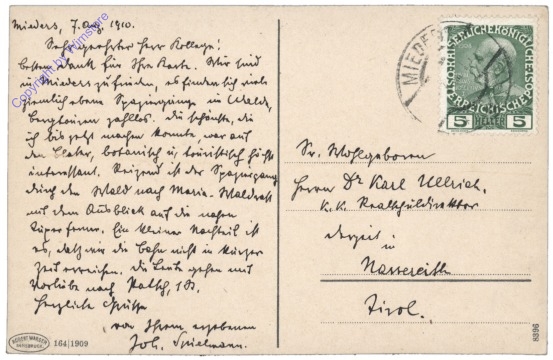 Mieders, 7. Aug. 1910.
Sehr geehrter Herr Kollege!
besten Dank für Ihre Karte. Wir sind
in Mieders zufrieden, es finden sich viele
ziemlich ebene Spaziergänge im Walde,
Bergtouren zahllos. Die schönste, die
ich bis jetzt machen konnte, war auf
den Elfer, botanisch u. touristisch höchst
interessant. Reizend ist der Spaziergang
durch den Wald nach Maria-Waldrast
mit dem Ausblick auf die nahen
Ein kleiner Nachteil ist
es, daß wir die Bahn nicht in kurzer
Zeit erreichen. Die Leute gehen mit
Vorliebe nach Patsch, 1 St.
Herzliche Grüße
von Ihrem ergebenen
Joh. Spielmann.
Copyright by Filmstore
164/1909
MIEDERS
KAISERLICHEKÖNIGLICHE
ÖSTERREICHISCHE
5 HELLER 5
Sr. Wohlgeboren
Herrn Dr. Karl Ullrich,
k. k. Realschuldirektor
derzeit in
Nassereith
Tirol.
8396